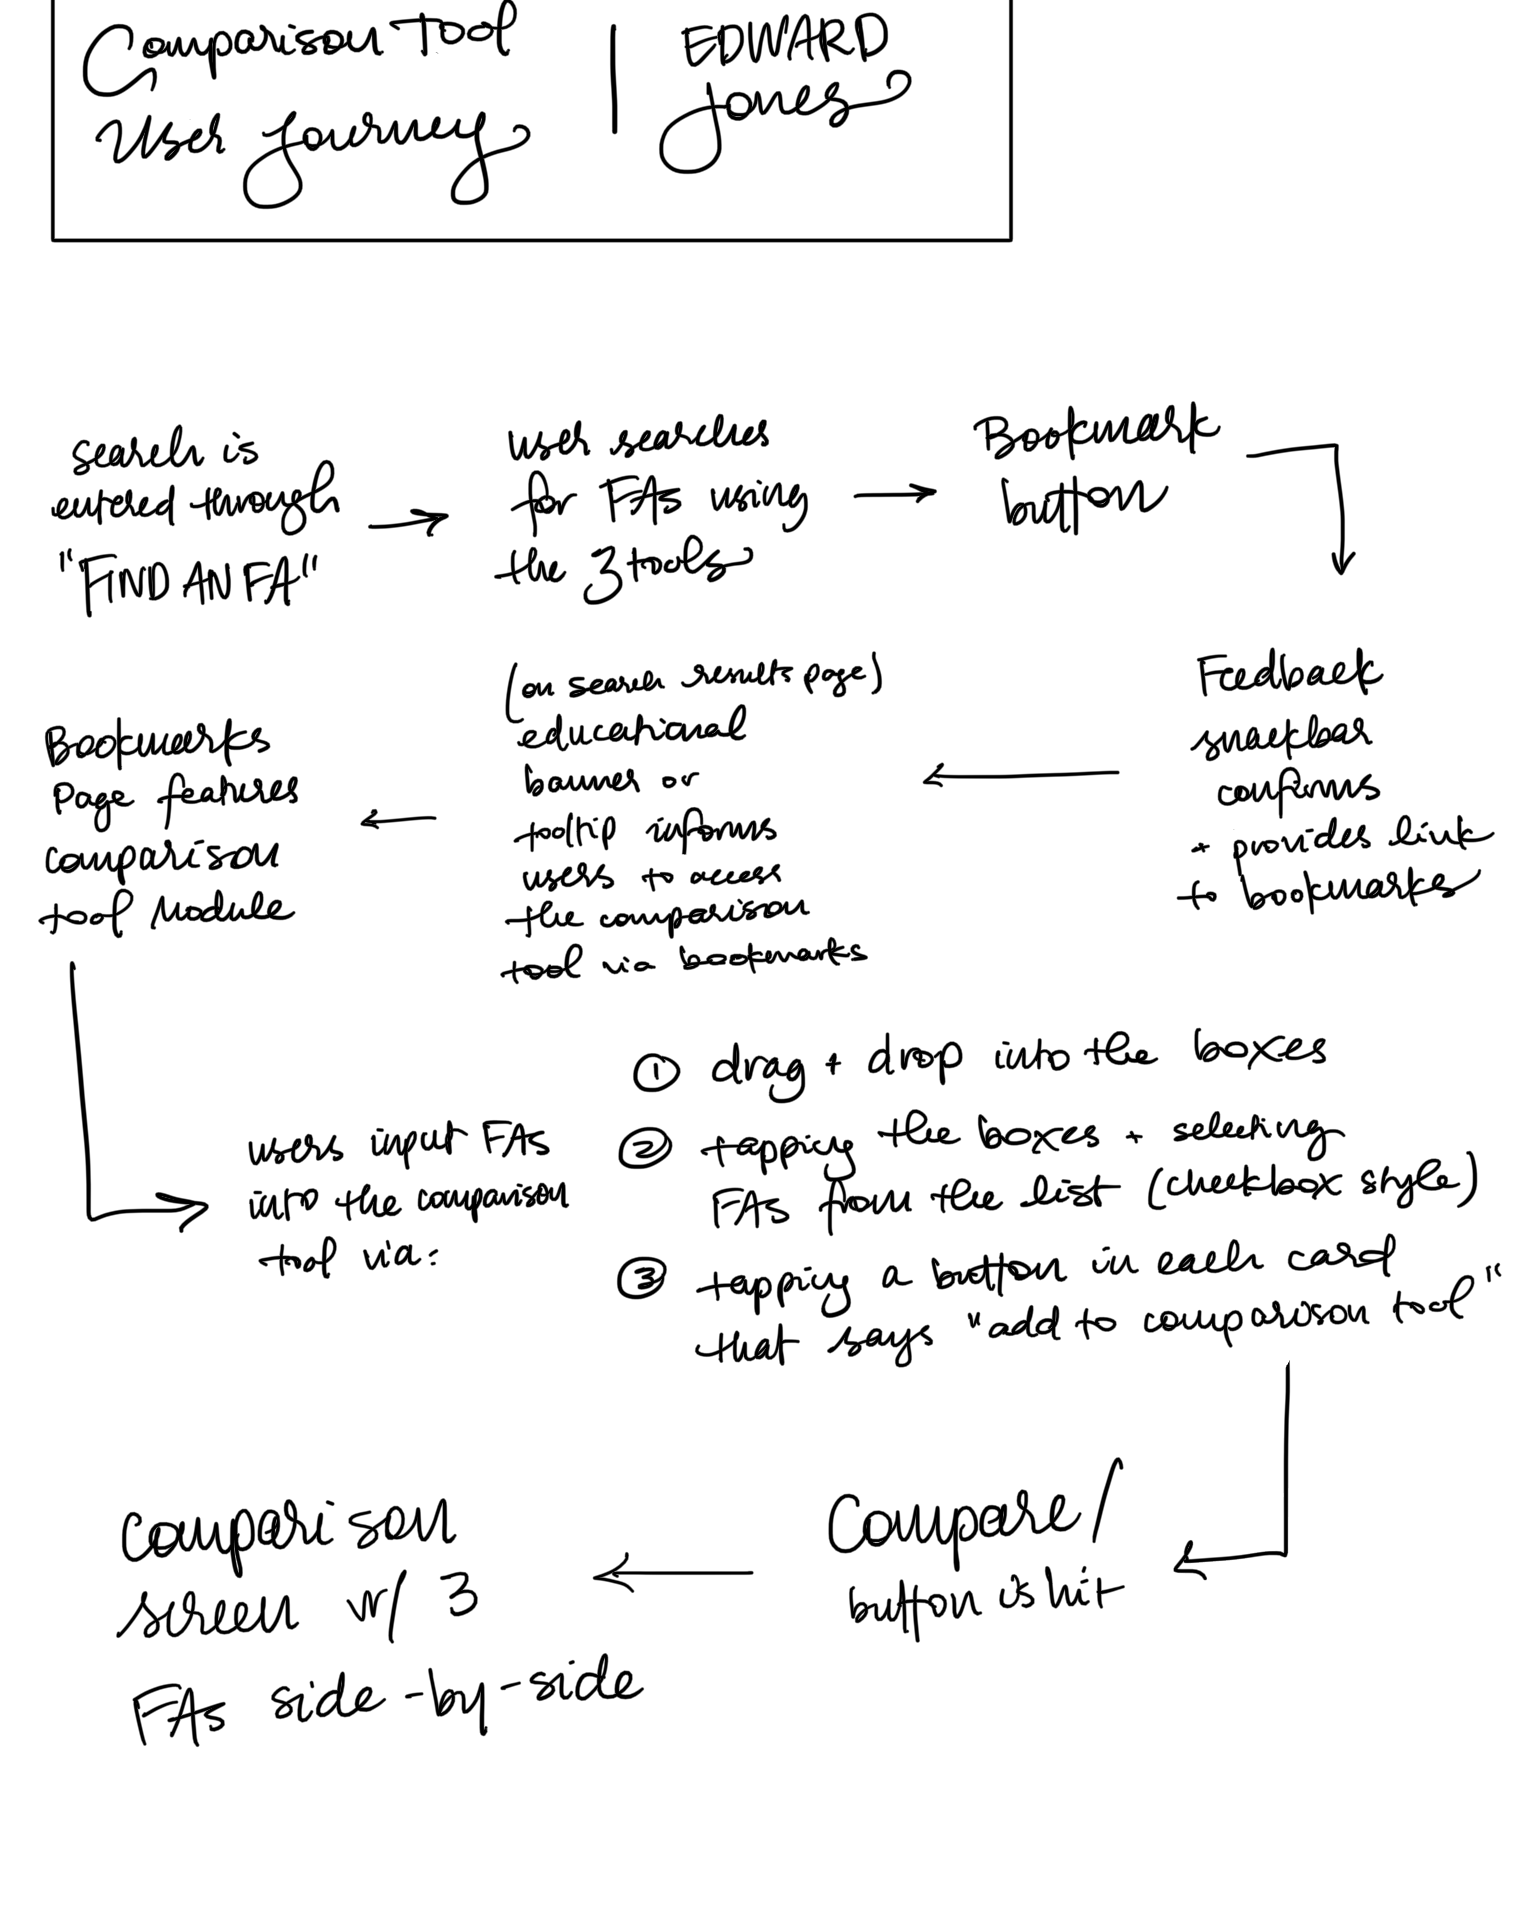 Comparison Tool
User Journey
EDWARD
Jones
search is
entered through
"FIND AN FA"
user searches
for FAs using
the 3 tools
Bookmark
button
Feedback
snackbar
confirms
+ provides link
to bookmarks
(on search results page)
educational
banner or
tooltip informs
users to access
the comparison
tool via bookmarks
Bookmarks
Page features
comparison
tool Module
users input FAs
into the comparison
tool via:
① drag + drop into the boxes
② tapping the boxes + selecting
FAs from the list (checkbox style)
③ tapping a button in each card
that says "add to comparison tool"
Compare/
button is hit
comparison
screen w/ 3
FAs side-by-side